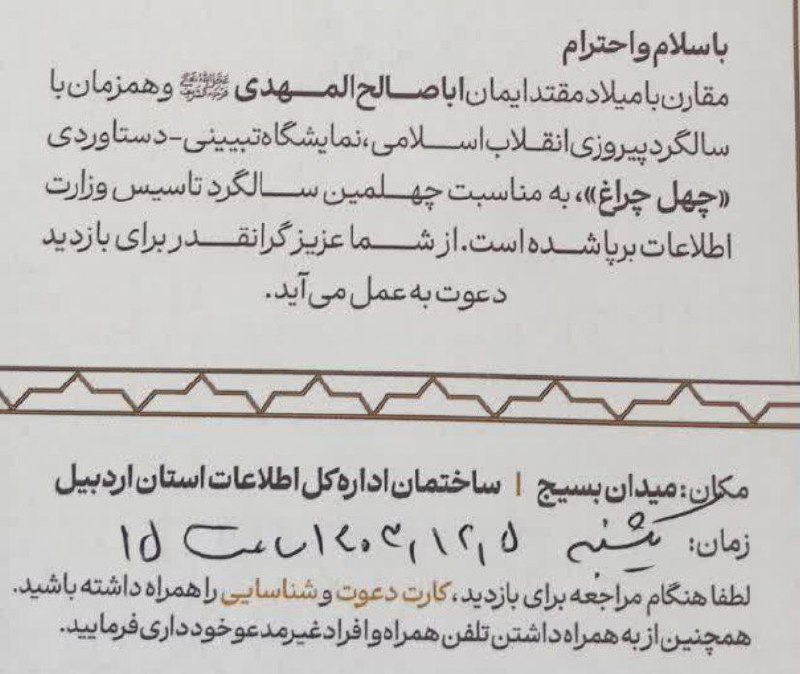 با سلام و احترام
مقارن با میلاد مقتدایمان اباصالح المهدی ﷻ و همزمان با
سالگرد پیروزی انقلاب اسلامی، نمایشگاه تبیینی-دستاوردی
«چهل چراغ»، به مناسبت چهلمین سالگرد تاسیس وزارت
اطلاعات برپا شده است. از شما عزیز گرانقدر برای بازدید
دعوت به عمل می‌آید.
مکان: میدان بسیج | ساختمان اداره کل اطلاعات استان اردبیل
زمان: یکشنبه ۱۴۰۳,۱۲,۵ ساعت ۱۵
لطفا هنگام مراجعه برای بازدید، کارت دعوت و شناسایی را همراه داشته باشید.
همچنین از به همراه داشتن تلفن همراه و افراد غیر مدعو خودداری فرمایید.